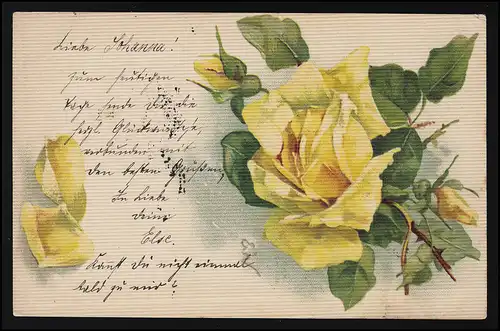 Liebe Johanna!
Zum heutigen
Tage sende Dir die
herzl. Glückwünsche,
verbunden mit
den besten Grüßen,
In Liebe
deine
Else.
Kannst du nicht einmal
bald zu mir?